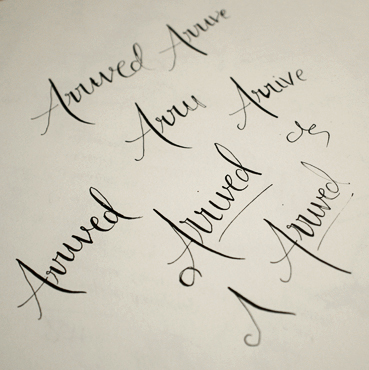 Arrived Arrive
Arru Arrive
Arrived Arrived Arrived